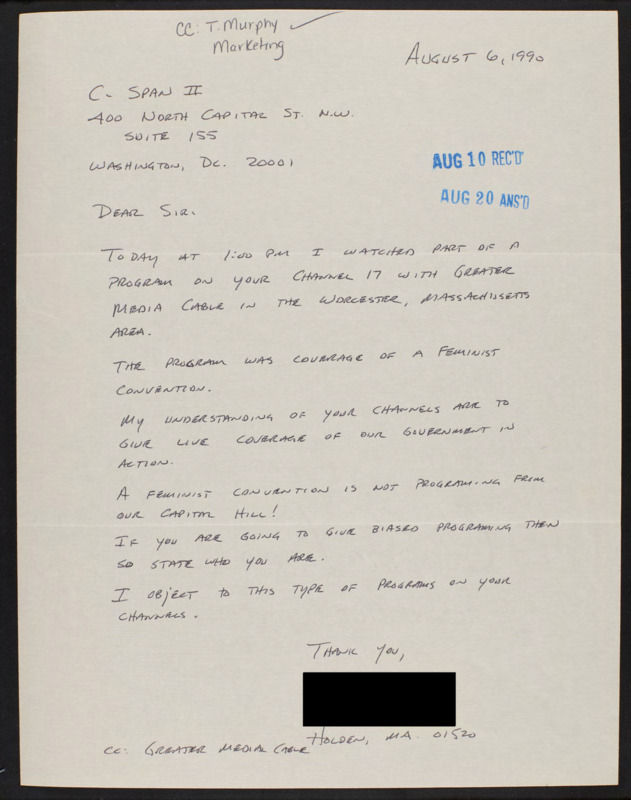 CC: T. Murphy
Marketing
August 6, 1990
C-SPAN II
400 North Capital St. N.W.
Suite 155
Washington, DC. 20001
AUG 10 REC'D
AUG 20 ANS'D
Dear Sir.
Today at 1:00 PM I watched part of a
program on your Channel 17 with Greater
Media Cable in the Worcester, Massachusetts
area.
The program was coverage of a Feminist
Convention.
My understanding of your channels are to
give live coverage of our government in
action.
A Feminist Convention is not programing from
our Capital Hill!
If you are going to give biased programing then
so state who you are.
I object to this type of programs on your
channels.
Thank You,
Holden, MA. 01520
cc: Greater Medial Cable